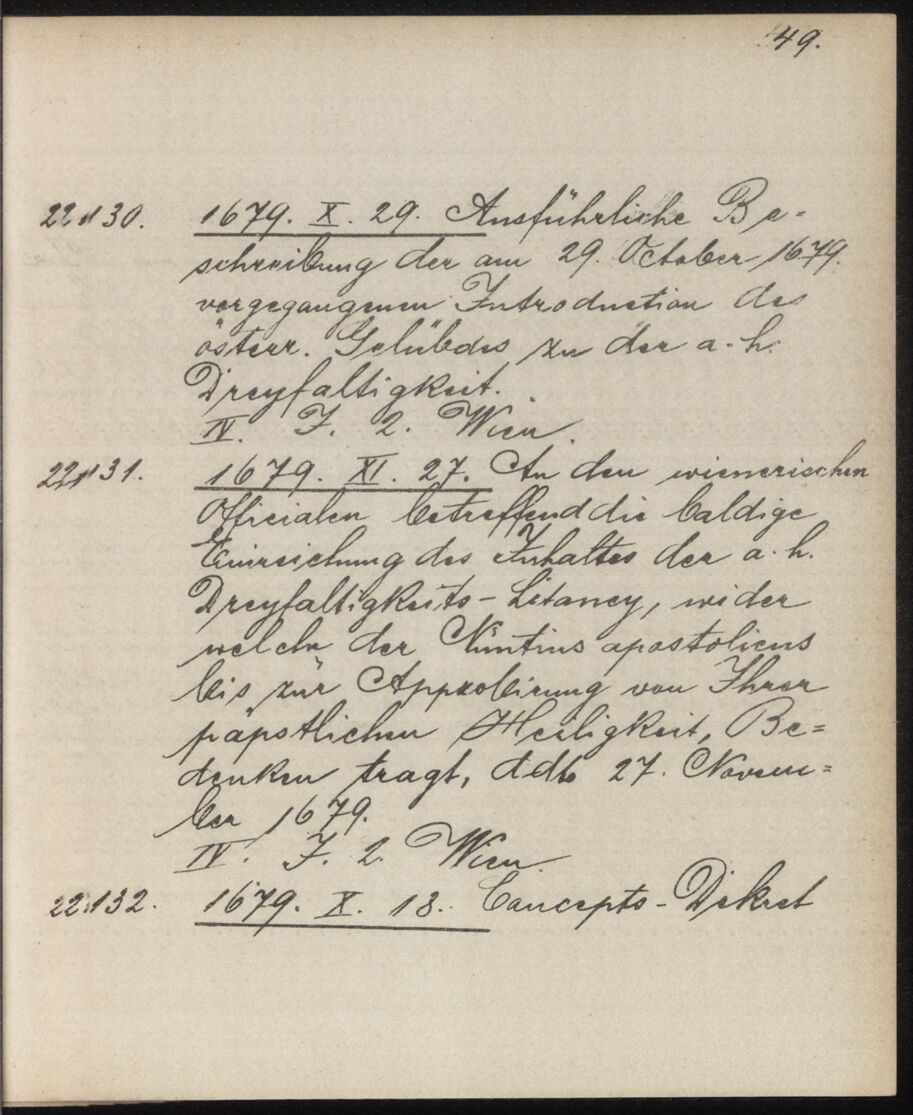 49.
22130. 1679. X. 29. Ausführliche Be=
schreibung der am 29. October 1679.
vorgegangenen Introduction des
österr. Gelübdes zu der a. h.
Dreyfaltigkeit.
IV. F. 2. Wien.
22131. 1679. XI. 27. An den wienerischen
Officialen betreffend die baldige
Einreichung des Inhaltes der a. h.
Dreyfaltigkeits-Litaney, wider
welche der Nuntius apostolicus
bis zur Approbirung von Ihrer
päpstlichen Heiligkeit, Be=
denken tragt, ddto 27. Novem=
ber 1679.
IV. F. 2. Wien.
22132. 1679. X. 18. Concepts-Dekret